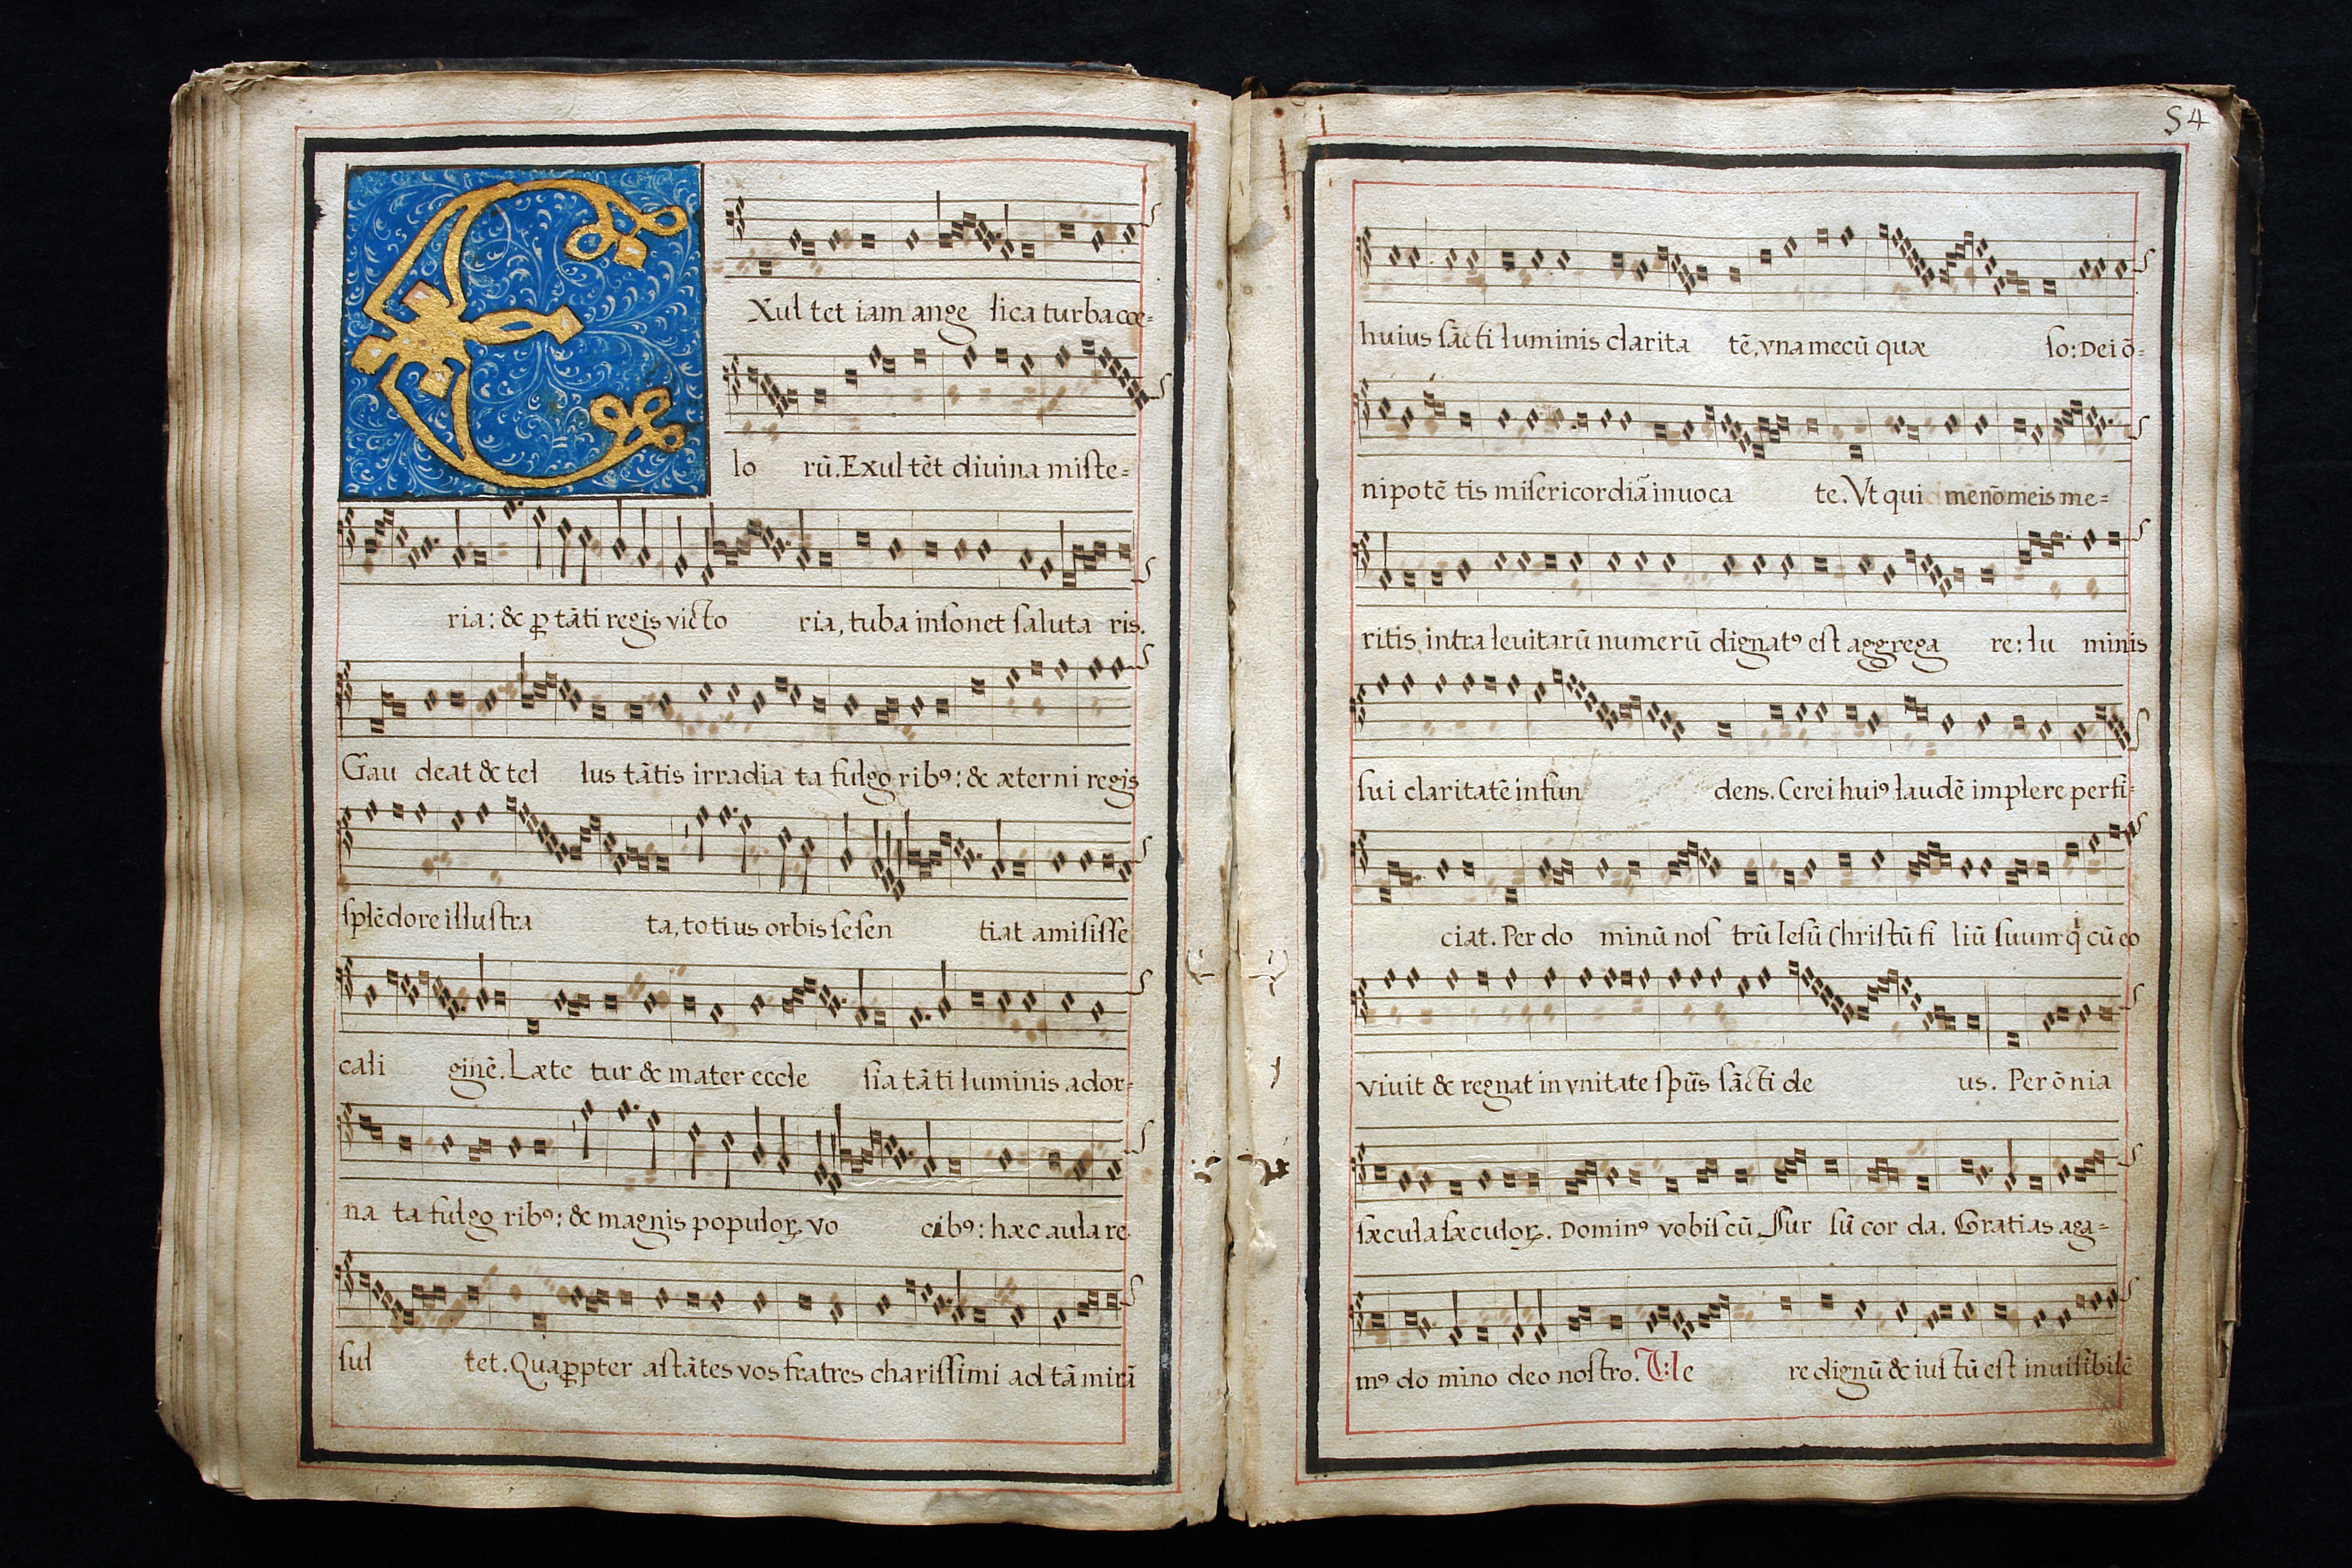 EXul tet iam ange lica turba coe=
lo rũ. Exul tẽt diuina miſte=
ria: & ꝑ tãti regis victo ria, tuba inſonet ſaluta ris.
Gau deat & tel lus tãtis irradia ta fulgo ribꝰ: & æterni regis
ſplẽdore illuſtra ta, totius orbis ſe ſen tiat amiſiſſe
cali ginẽ. Læte tur & mater eccle ſia tãti luminis ador=
na ta fulgo ribꝰ: & magnis populoꝝ vo cibꝰ: hæc aula re
ſul tet. Quaꝓpter aſtãtes vos fratres chariſſimi ad tã mirã
54
huius ſãcti luminis clarita tẽ, vna mecũ quæ ſo: Dei õ=
nipotẽ tis miſericordiã inuoca te. Vt qui me nõ meis me=
ritis intra leuitarũ numerũ dignatꝰ eſt aggrega re: lu minis
ſui claritatẽ infun dens. Cerei huiꝰ laudẽ implere perfi=
ciat. Per do minũ noſ trũ Ieſũ Chriſtũ fi liũ ſuum q̇ cũ eo
viuit & regnat in vnitate ſpĩis ſãcti de us. Per õnia
ſæcula ſæculoꝝ. Dominꝰ vobiſcũ, Sur ſũ cor da. Gratias aga=
mꝰ do mino deo noſtro. V:le re dignũ & iuſtũ eſt inuiſibilẽ